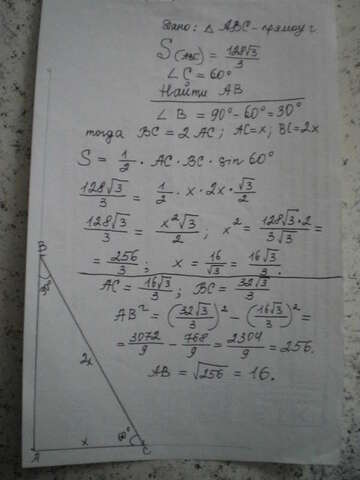 Дано: △ ABC - прямоуг.
S(ABC) = 128√3/3
∠C = 60°
Найти AB
∠ B = 90° - 60° = 30°
тогда BC = 2 AC; AC = x; BC = 2x
S = 1/2 · AC · BC · sin 60°
128√3/3 = 1/2 · x · 2x · √3/2
128√3/3 = x²√3/2; x² = 128√3·2/3√3 =
= 256/3; x = 16/√3 = 16√3/3.
AC = 16√3/3; BC = 32√3/3
AB² = (32√3/3)² - (16√3/3)² =
= 3072/9 - 768/9 = 2304/9 = 256.
AB = √256 = 16.
B
30°
2x
x
60°
A
C